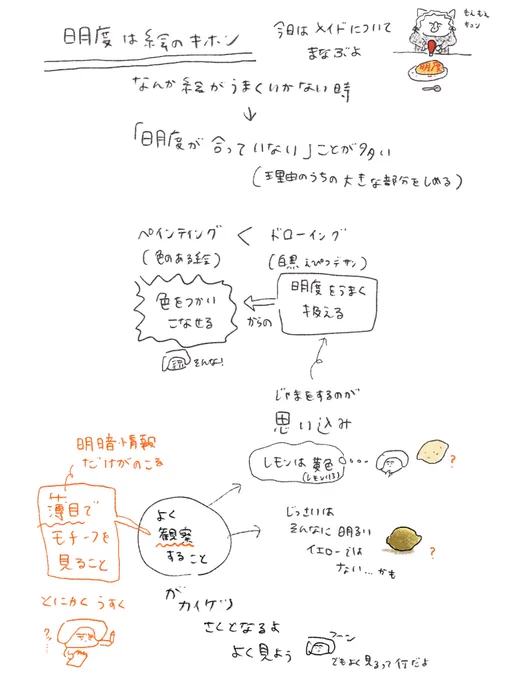 明度は絵のキホン
今日はメイドについて
まなぶよ
もえもえ
キュン
明度
なんか絵がうまくいかない時
↓
「明度が合っていない」ことが多い
(理由のうちの大きな部分をしめる)
ペインティング < ドローイング
(色のある絵)
(白黒えんぴつデサン)
色をつかい
こなせる
からの
明度をうまく
扱える
そんな!
じゃまをするのが
思い込み
レモンは黄色
(レモンイロ)
?
明暗情報
だけがのこる
薄目で
モチーフを
見ること
よく
観察
すること
じっさいは
そんなに明るい
イエローでは
ない…かも
?
とにかくうすく
?
が
カイケツ
さくとなるよ
よく見よう
フーン
でもよく見るって何だよ